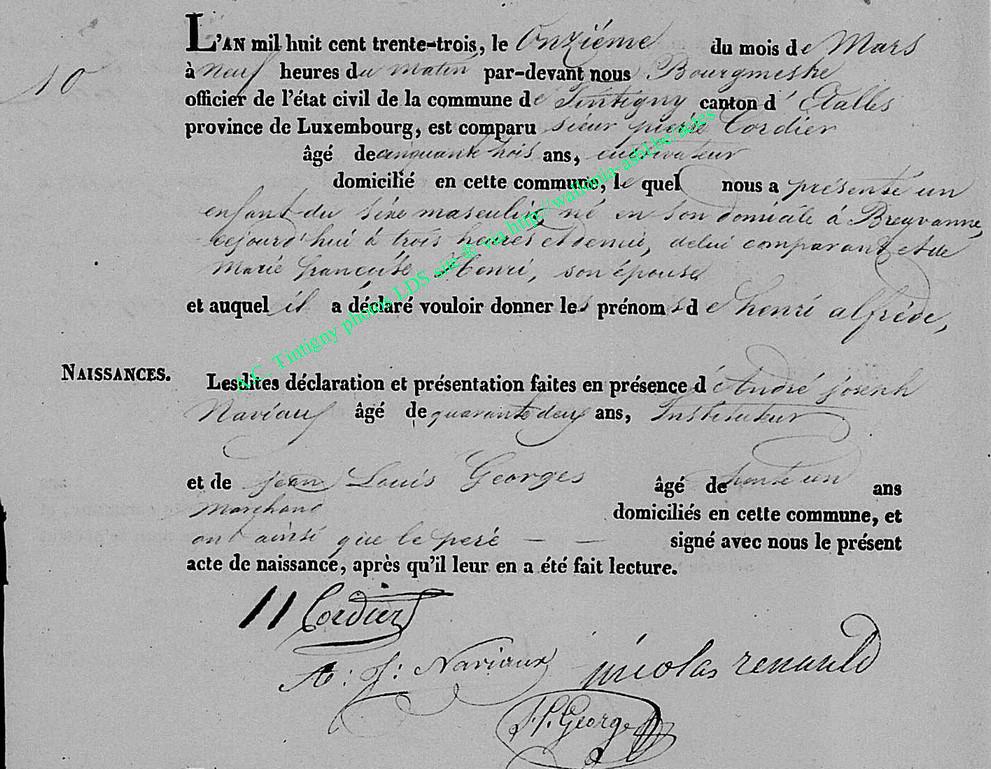 L'AN mil huit cent trente-trois, le Onzième du mois de Mars
10
à Neuf heures du matin par-devant nous Bourgmestre
officier de l'état civil de la commune de Tintigny canton d'Etalles
province de Luxembourg, est comparu sieur pierre Cordier
âgé de cinquante trois ans, cultivateur
domicilié en cette commune, le quel nous a présenté un
enfant du sèxe masculin né en son domicile à Breuvanne,
cejourd'hui à trois heures et demie, de lui comparant et de
Marie françoise Henri, son épouse
et auquel il a déclaré vouloir donner les prénoms de henri alfrède,
NAISSANCES.
Lesdites déclaration et présentation faites en présence d'André joseph
Naviaux âgé de quarante deux ans, Instituteur
et de jean Louis Georges âgé de trente un ans
Marchand domiciliés en cette commune, et
ont ainsi que le peré — — signé avec nous le présent
acte de naissance, après qu'il leur en a été fait lecture.
Cordier
A: J: Naviaux nicolas renauld
J.L. George
A.C. Tintigny photos LDS site © via http://wallonia-asbl.be/actes